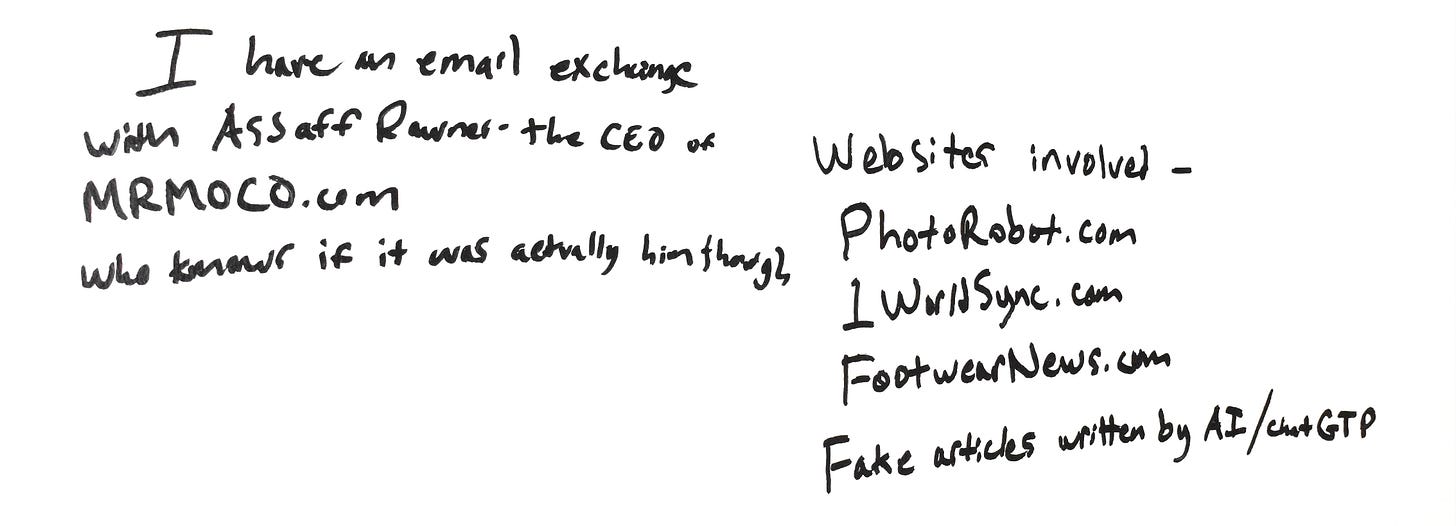 I have an email exchange
with Assaff Rawner - the CEO of
MRMOCO.com
who knows if it was actually him though
Websites involved -
PhotoRobot.com
1WorldSync.com
FootwearNews.com
Fake articles written by AI/chatGTP